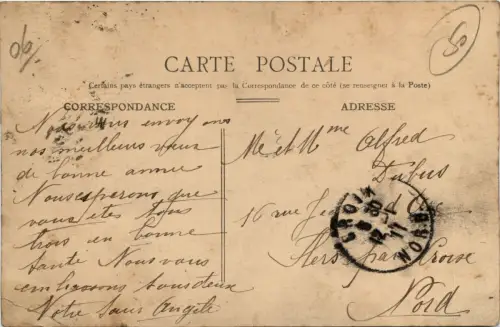 06/1
50
CARTE POSTALE
Certains pays étrangers n'acceptent pas la Correspondance de ce côté (se renseigner à la Poste)
CORRESPONDANCE
Nous vous envoyons
nos meilleurs vœux
de bonne année
Nous esperons que
vous êtes tous
trois en bonne
Santé Nous vous
embrassons tous deux
Votre Angèle
ADRESSE
Mr et Mme Alfred
Dubus
16 rue
Flers par Croix
Nord
CROIX
NORD